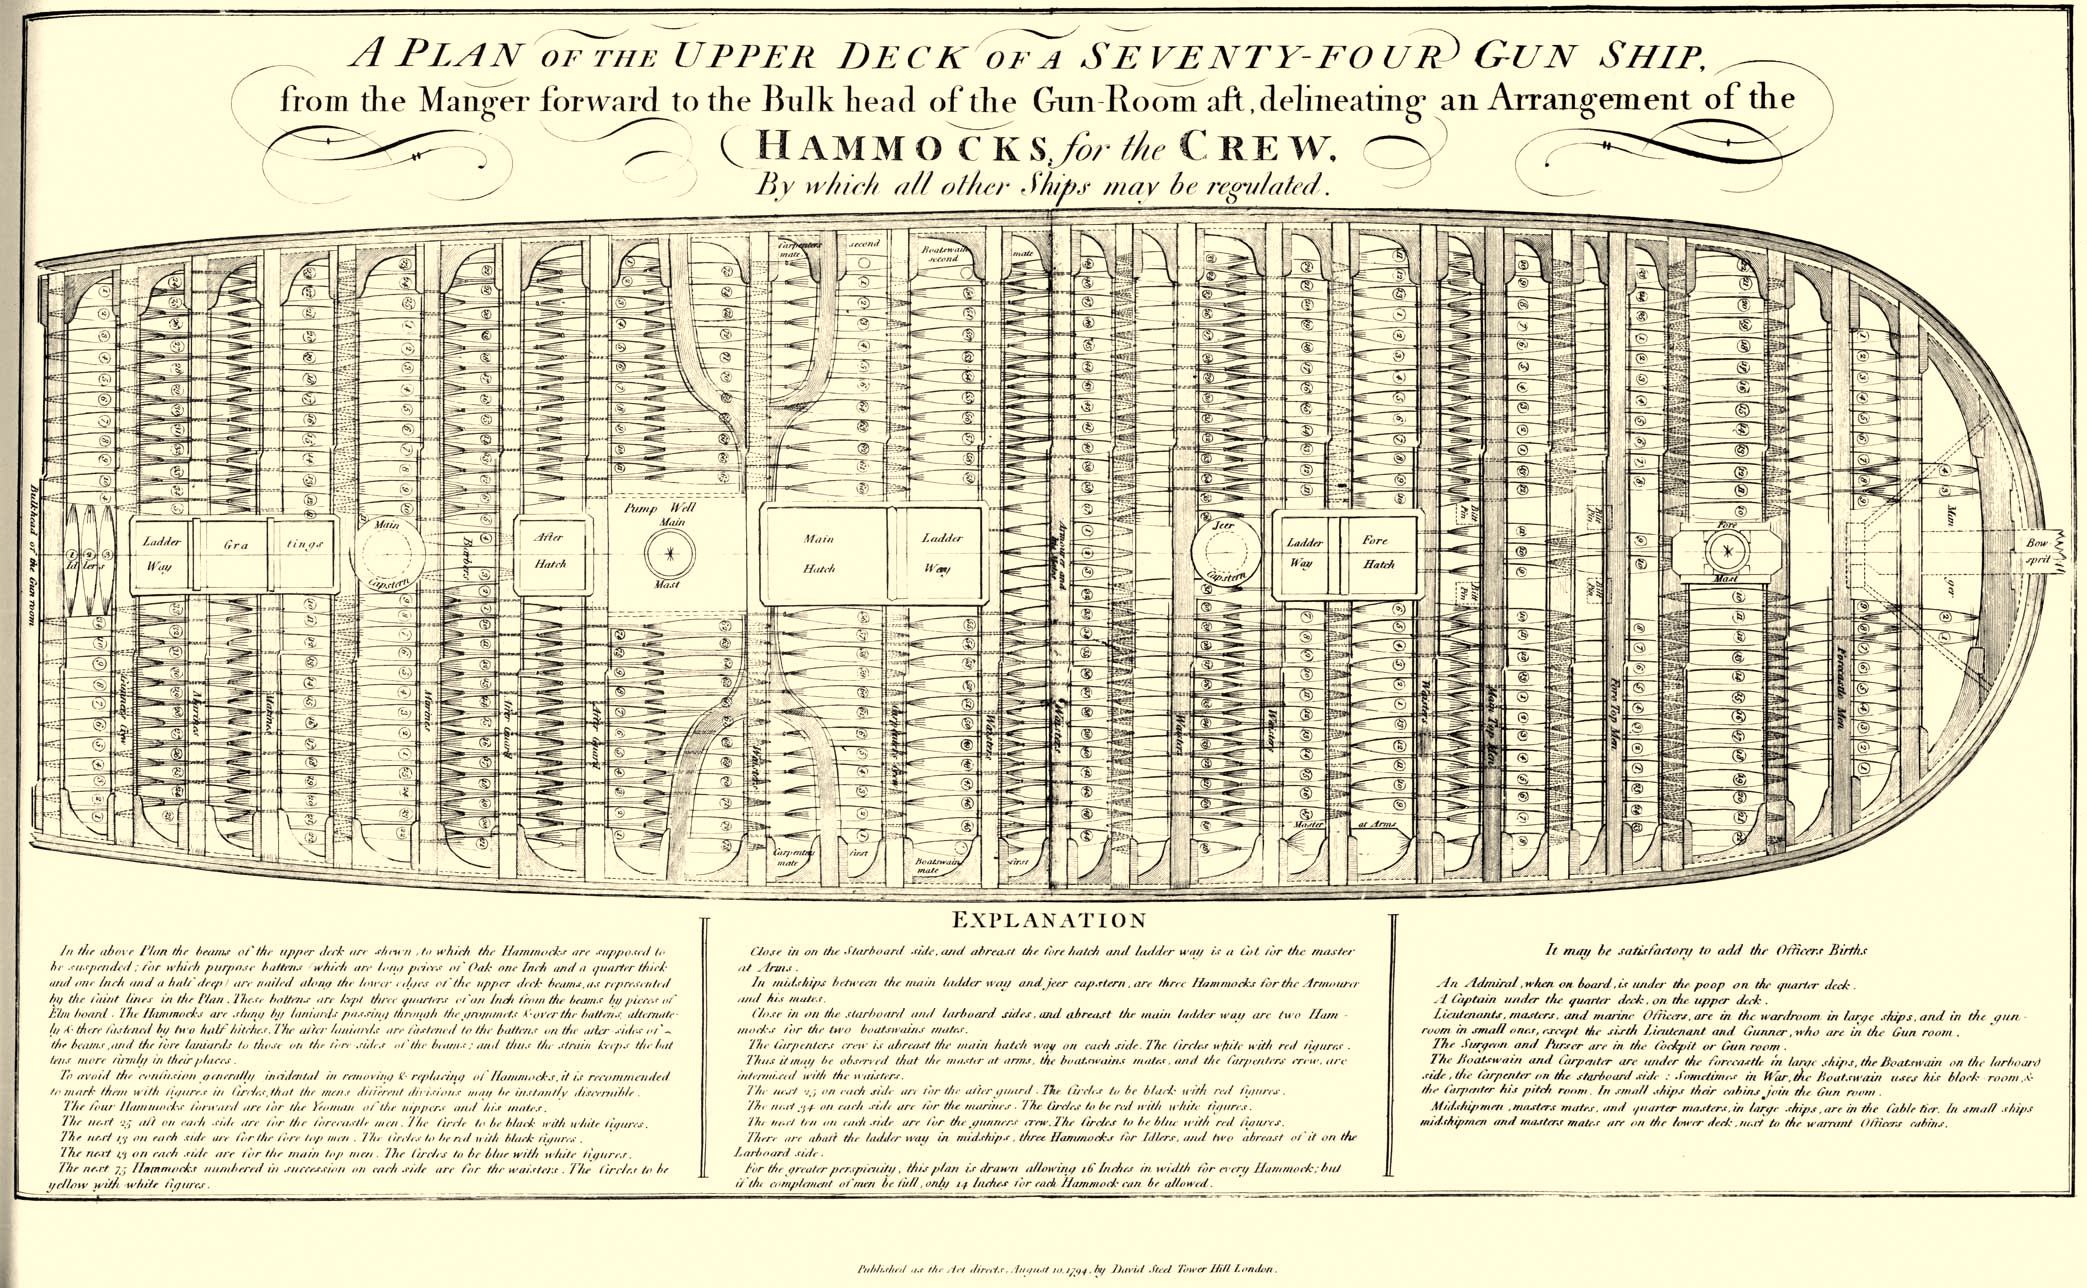 A PLAN OF THE UPPER DECK OF A SEVENTY-FOUR GUN SHIP,
from the Manger forward to the Bulk head of the Gun-Room aft, delineating an Arrangement of the
HAMMOCKS, for the CREW.
By which all other Ships may be regulated.
Carpenters mate
second
Boatswain second
mate
Bulkhead of the Gun room
Idlers
Ladder Way
Gra tings
Main Capstern
Barbers
After Hatch
Pump Well
Main Mast
Main Hatch
Ladder Way
Armourer and his Mates
Jeer Capstern
Ladder Way
Fore Hatch
Bitt Pin
Bitt Pin
Bitt Pin
Bitt Pin
Fore Mast
Man ger
Bow sprit
Marines
Marines
Marines
After Guard
After Guard
Waisters
Carpenters crew
Waisters
Waisters
Waisters
Waisters
Waisters
Main Top Men
Fore Top Men
Forecastle Men
Carpenters mate
first
Boatswain mate
first
Master at Arms
EXPLANATION
In the above Plan the beams of the upper deck are shewn, to which the Hammocks are supposed to
be suspended; for which purpose battens (which are long peices of Oak one Inch and a quarter thick
and one Inch and a half deep) are nailed along the lower edges of the upper deck beams, as represented
by the faint lines in the Plan. These battens are kept three quarters of an Inch from the beams by pieces of
Elm board. The Hammocks are slung by laniards passing through the grommets & over the battens, alternate-
ly & there fastened by two half hitches. The after laniards are fastened to the battens on the after sides of
the beams, and the fore laniards to those on the fore sides of the beams; and thus the strain keeps the bat
tens more firmly in their places.
To avoid the confusion generally incidental in removing & replacing of Hammocks, it is recommended
to mark them with figures in Circles, that the mens different divisions may be instantly discernible.
The four Hammocks forward are for the Yeoman of the nippers and his mates.
The next 25 aft on each side are for the forecastle men. The Circle to be black with white figures.
The next 13 on each side are for the fore top men. The Circles to be red with black figures.
The next 13 on each side are for the main top men. The Circles to be blue with white figures.
The next 75 Hammocks numbered in succession on each side are for the waisters. The Circles to be
yellow with white figures.
Close in on the Starboard side, and abreast the fore hatch and ladder way is a Cot for the master
at Arms.
In midships between the main ladder way and jeer capstern, are three Hammocks for the Armourer
and his mates.
Close in on the starboard and larboard sides, and abreast the main ladder way are two Ham-
mocks for the two boatswains mates.
The Carpenters crew is abreast the main hatch way on each side. The Circles white with red figures.
Thus it may be observed that the master at arms, the boatswains mates, and the Carpenters crew, are
intermixed with the waisters.
The next 25 on each side are for the after guard. The Circles to be black with red figures.
The next 34 on each side are for the marines. The Circles to be red with white figures.
The next ten on each side are for the gunners crew. The Circles to be blue with red figures.
There are abaft the ladder way in midships, three Hammocks for Idlers, and two abreast of it on the
Larboard side.
For the greater perspicuity, this plan is drawn allowing 16 Inches in width for every Hammock; but
if the complement of men be full, only 14 Inches for each Hammock can be allowed.
It may be satisfactory to add the Officers Births
An Admiral, when on board, is under the poop on the quarter deck.
A Captain under the quarter deck, on the upper deck.
Lieutenants, masters, and marine Officers, are in the wardroom in large ships, and in the gun-
room in small ones, except the sixth Lieutenant and Gunner, who are in the Gun room.
The Surgeon and Purser are in the Cockpit or Gun room.
The Boatswain and Carpenter are under the forecastle in large ships, the Boatswain on the larboard
side, the Carpenter on the starboard side: Sometimes in War, the Boatswain uses his block room, &
the Carpenter his pitch room. In small ships their cabins join the Gun room.
Midshipmen, masters mates, and quarter masters, in large ships, are in the Cable tier. In small ships
midshipmen and masters mates are on the lower deck, next to the warrant Officers cabins.
Published as the Act directs, August 10, 1794, by David Steel Tower Hill London.